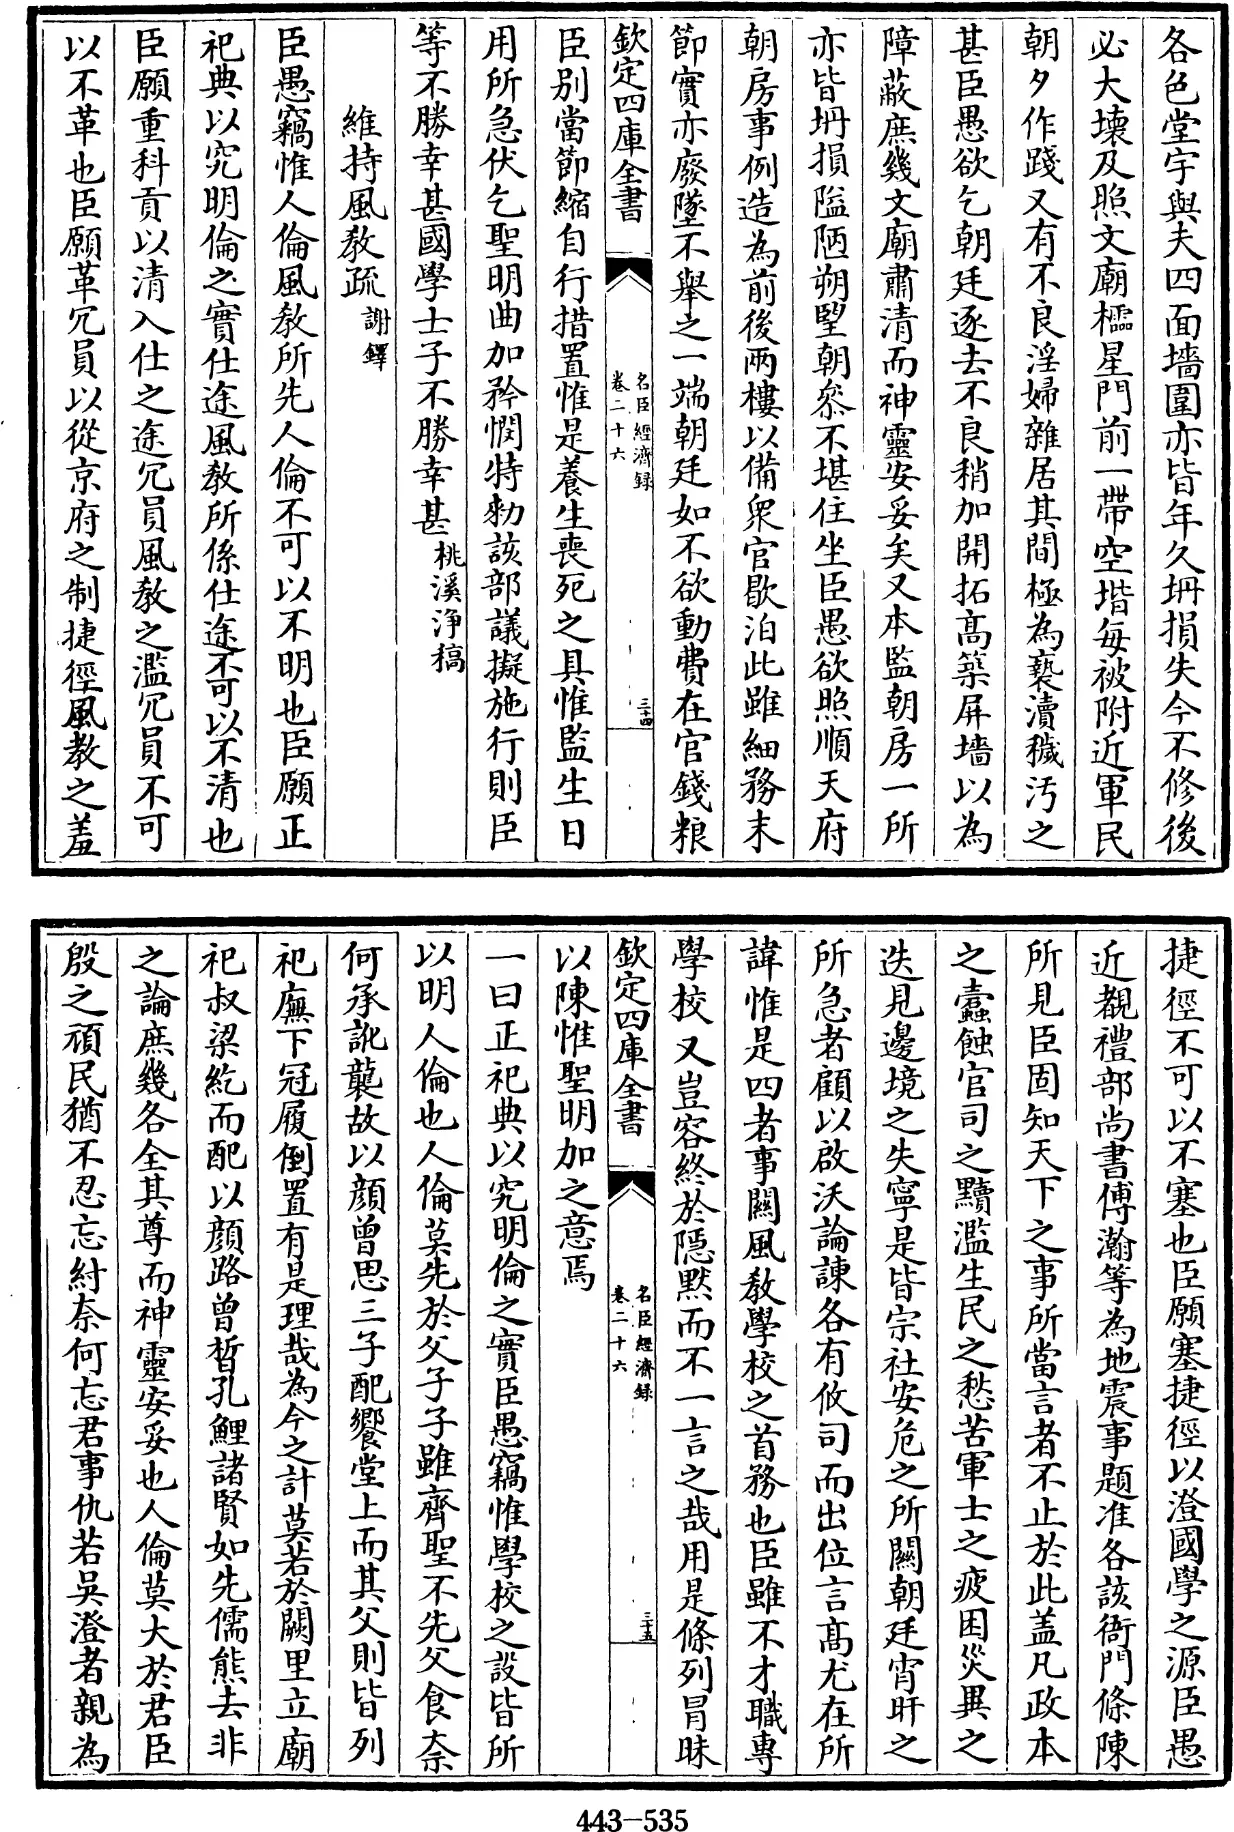 各色堂宇與夫四面墻圍亦皆年久坍損失今不修後
必大壞及照文廟櫺星門前一帶空堦每被附近軍民
朝夕作踐又有不良淫婦雜居其間極為褻瀆穢汚之
甚臣愚欲乞朝廷逐去不良稍加開拓高築屏墻以為
障蔽庶幾文廟肅清而神靈安妥矣又本監朝房一所
亦皆坍損隘陋朔望朝叅不堪住坐臣愚欲照順天府
朝房事例造為前後兩樓以備衆官歇泊此雖細務末
節實亦廢墜不舉之一端朝廷如不欲動費在官錢粮
欽定四庫全書
名臣經濟録
卷二十六
三十四
臣别當節縮自行措置惟是養生喪死之具惟監生日
用所急伏乞聖明曲加矜憫特勅該部議擬施行則臣
等不勝幸甚國學士子不勝幸甚桃溪淨稿
維持風教疏謝鐸
臣愚竊惟人倫風教所先人倫不可以不明也臣願正
祀典以究明倫之實仕途風教所係仕途不可以不清也
臣願重科貢以清入仕之途冗員風教之濫冗員不可
以不革也臣願革冗員以從京府之制捷徑風教之羞
捷徑不可以不塞也臣願塞捷徑以澄國學之源臣愚
近覩禮部尚書傅瀚等為地震事題准各該衙門條陳
所見臣固知天下之事所當言者不止於此盖凡政本
之蠧蝕官司之黷濫生民之愁苦軍士之疲困災異之
迭見邊境之失寧是皆宗社安危之所關朝廷宵旰之
所急者顧以啟沃論諫各有攸司而出位言高尤在所
諱惟是四者事關風教學校之首務也臣雖不才職專
學校又豈容終於隱默而不一言之哉用是條列冒昧
欽定四庫全書
名臣經濟録
卷二十六
三十五
以陳惟聖明加之意焉
一曰正祀典以究明倫之實臣愚竊惟學校之設皆所
以明人倫也人倫莫先於父子子雖齊聖不先父食奈
何承訛襲故以顔曾思三子配饗堂上而其父則皆列
祀廡下冠履倒置有是理哉為今之計莫若於闕里立廟
祀叔梁紇而配以顔路曾晳孔鯉諸賢如先儒熊去非
之論庶幾各全其尊而神靈安妥也人倫莫大於君臣
殷之頑民猶不忍忘紂奈何忘君事仇若吳澄者親為
443-535